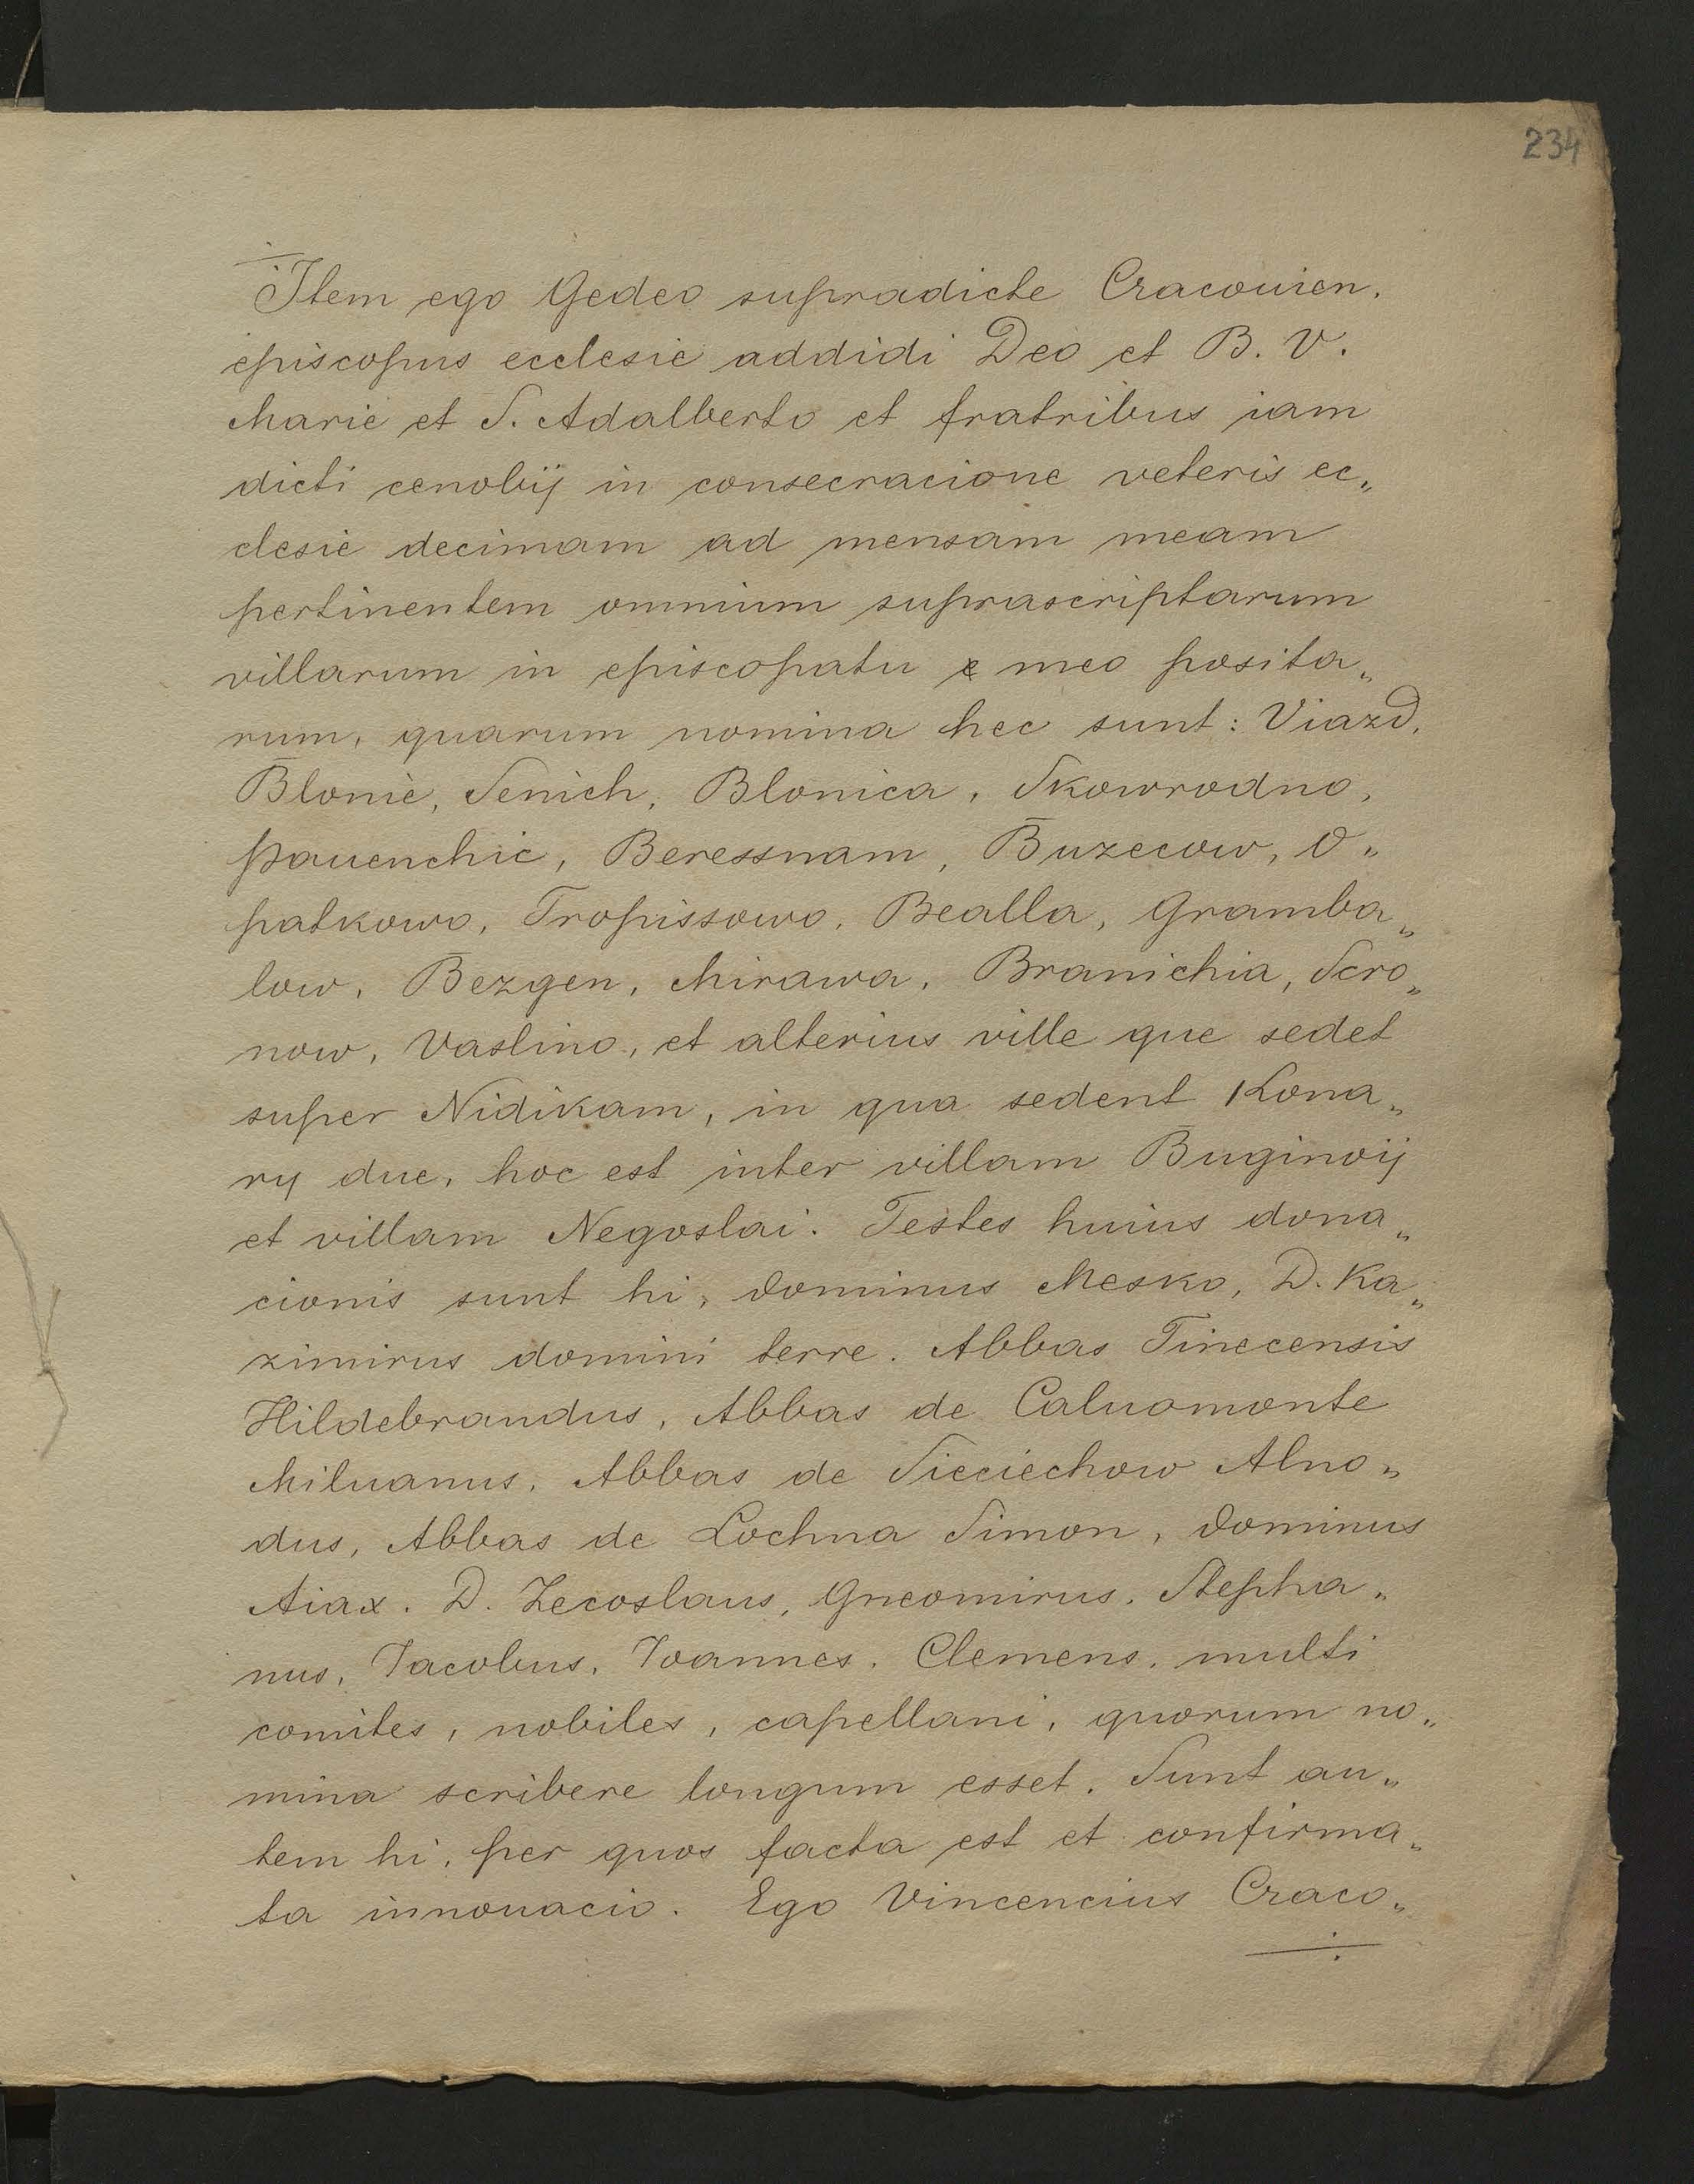 234
Item ego Gedeo supradicte Cracouien.
episcopus ecclesie addidi Deo et B. V.
Marie et S. Adalberto et fratribus iam
dicti cenobij in consecracione veteris ec„
clesie decimam ad mensam meam
pertinentem omnium suprascriptarum
villarum in episcopatu meo posita„
rum, quarum nomina hec sunt: Viazd,
Blonie, Senich, Blonica, Skowrodno,
Pauenchic, Beressnam, Buzecow, O„
patkowo, Tropissowo, Bealla, Gramba„
low, Bezgen, Mirawa, Branichia, Scro„
now, Vaslino, et alterius ville que sedet
super Nidikam, in qua sedent Kona„
ry due, hoc est inter villam Buginvij
et villam Negoslai. Testes huius dona„
cionis sunt hi, dominus Mesko, D. Ka„
zimirus domini terre. Abbas Tinecensis
Hildebrandus, Abbas de Caluomonte
Miluanus, Abbas de Sieciechow Alno„
dus, Abbas de Lochna Simon, dominus
Aiax. D. Zecoslaus, Gneomirus, Stepha„
nus, Jacobus, Joannes, Clemens, multi
comites, nobiles, capellani, quorum no„
mina scribere longum esset. Sunt au„
tem hi, per quos facta est et confirma„
ta innouacio. Ego Vincencius Craco„